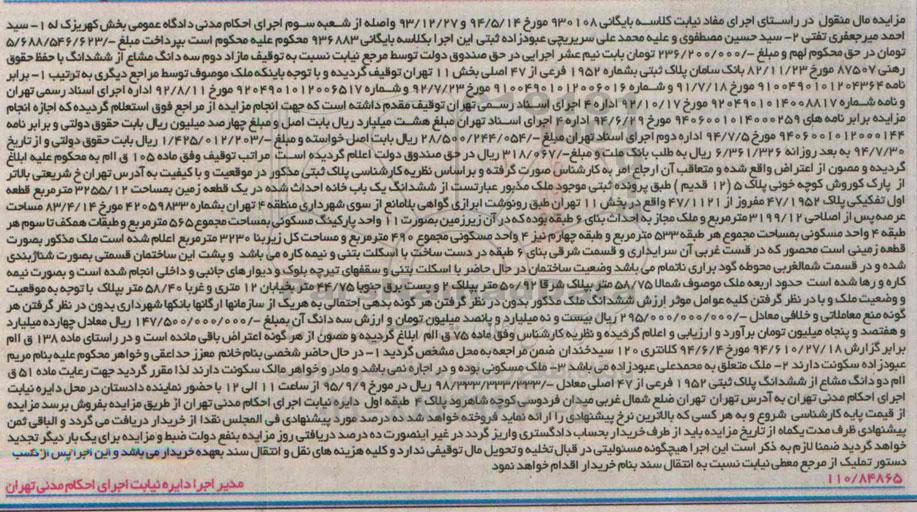 مزایده مال منقول در راستای اجرای مفاد نیابت کلاسه بایگانی ۹۳۰۱۰۸ مورخ ۹۴/۵/۱۴ و ۹۳/۱۲/۲۷ واصله از شعبه سوم اجرای احکام مدنی دادگاه عمومی بخش کهریزک له ۱- سید
احمد میرجعفری تفتی ۲- سید حسین مصطفوی و علیه محمد علی سریریچی عبودزاده ثبتی این اجرا بکلاسه بایگانی ۹۳۶۸۸۳ محکوم علیه محکوم است بپرداخت مبلغ -/۵/۶۸۸/۵۴۶/۶۲۳
تومان در حق محکوم لهم و مبلغ -/۲۳۶/۲۰۰/۰۰۰ تومان بابت نیم عشر اجرایی در حق صندوق دولت توسط مرجع نیابت نسبت به توقیف مازاد دوم سه دانگ مشاع از ششدانگ با حفظ حقوق
رهنی ۸۷۵۰۷ مورخ ۸۲/۱۱/۲۳ بانک سامان پلاک ثبتی بشماره ۱۹۵۲ فرعی از ۴۷ اصلی بخش ۱۱ تهران توقیف گردیده و با توجه باینکه ملک موصوف توسط مراجع دیگری به ترتیب ۱- برابر
نامه ۹۱۰۰۴۹۰۱۰۱۲۰۴۳۶۴ مورخ ۹۱/۷/۱۸ و شماره ۹۱۰۰۴۹۰۱۰۱۲۰۰۶۰۱۶ مورخ ۹۲/۷/۲۳ و شماره ۹۲۰۴۹۰۱۰۱۲۰۰۶۵۱۷ مورخ ۹۲/۸/۱۱ اداره اجرای اسناد رسمی تهران
و نامه شماره ۹۲۰۴۹۰۱۰۱۴۰۰۸۸۱۷ مورخ ۹۲/۱۰/۱۷ اداره ۴ اجرای اسناد رسمی تهران توقیف مقدم داشته است که جهت انجام مزایده از مراجع فوق استعلام گردیده که اجازه انجام
مزایده برابر نامه های ۹۴۰۶۰۰۱۰۱۴۰۰۰۲۵۹ مورخ ۹۴/۶/۲۹ اداره ۴ اجرای اسناد تهران مبلغ هشت میلیارد ریال بابت اصل و مبلغ چهارصد میلیون ریال بابت حقوق دولتی و برابر نامه
۹۴۰۶۰۰۱۰۱۲۰۰۰۱۴۴ مورخ ۹۴/۷/۵ اداره دوم اجرای اسناد تهران مبلغ -/۲۸/۵۰۰/۲۴۴/۰۵۴ ریال بابت اصل خواسته و مبلغ -/۱/۴۲۵/۰۱۲/۲۰۳ ریال بابت حقوق دولتی و از تاریخ
۹۴/۷/۳۰ به بعد روزانه ۶/۳۶۱/۳۲۶ ریال به طلب بانک ملت و مبلغ -/۳۱۸/۰۶۷ ریال در حق صندوق دولت اعلام گردیده است مراتب توقیف وفق ماده ۱۰۵ ق اام به محکوم علیه ابلاغ
گردیده و مصون از اعتراض واقع شده و متعاقب آن ارجاع امر به کارشناس صورت گرفته و بر اساس نظریه کارشناسی پلاک ثبتی مذکور در موقعیت و با کیفیت به آدرس تهران خ شریعتی بالاتر
از پارک کوروش کوچه خوئی پلاک ۵ (۱۲ قدیم) طبق پرونده ثبتی موجود ملک مذبور عبارتست از ششدانگ یک باب خانه احداث شده در یک قطعه زمین بمساحت ۳۲۵۵/۱۲ مترمربع قطعه
اول تفکیکی پلاک ۴۷/۱۹۵۲ مفروز از ۴۷/۱۱۲۱ واقع در بخش ۱۱ تهران طبق رونوشت ابرازی گواهی بلامانع از سوی شهرداری منطقه ۴ تهران بشماره ۴۲۰۵۹۸۳۳ مورخ ۸۳/۴/۱۴ مساحت
عرصه پس از اصلاحی ۳۱۹۹/۱۲ مترمربع و ملک مجاز به احداث بنای ۶ طبقه بوده که در آن زیرزمین بصورت ۱۱ واحد پارکینگ مسکونی بمساحت مجموع ۵۶۵ مترمربع و طبقات همکف تا سوم هر
طبقه ۴ واحد مسکونی بمساحت مجموع هر طبقه ۵۳۳ مترمربع و طبقه چهارم نیز ۴ واحد مسکونی مجموع ۴۹۰ مترمربع و مساحت کل زیربنا ۳۲۳۰ مترمربع اعلام شده است ملک مذکور بصورت
قطعه زمینی است محصور که در قسمت غربی آن سرایداری و قسمت شرقی بنای ۶ طبقه در دست ساخت با اسکلت بتنی و نیمه کاره می باشد و پشت این ساختمان قسمتی بصورت شناژبندی
شده و در قسمت شمالغربی محوطه گود براری ناتمام می باشد وضعیت ساختمان در حال حاضر با اسکلت بتنی و سقفهای تیرچه بلوک و دیوارهای جانبی و داخلی انجام شده است و بصورت نیمه
کاره و رها شده است حدود اربعه ملک موصوف شمالا ۵۸/۷۵ متر بپلاک شرقا ۵۰/۹۲ متر بپلاک ۲ و پست برق جنوبا ۴۴/۷۵ متر بخیابان ۱۲ متری و غربا ۵۸/۴۰ متر بپلاک با توجه به موقعیت
و وضعیت ملک و با در نظر گرفتن کلیه عوامل موثر ارزش ششدانگ ملک مذکور بدون در نظر گرفتن هر گونه بدهی احتمالی به هر یک از سازمانها ارگانها بانکها شهرداری بدون در نظر گرفتن هر
گونه منع معاملاتی و خلافی معادل -/۲۹۵/۰۰۰/۰۰۰/۰۰۰ ریال بیست و نه میلیارد و پانصد میلیون تومان و ارزش سه دانگ آن بمبلغ -/۱۴۷/۵۰۰/۰۰۰/۰۰۰ ریال معادل چهارده میلیارد
و هفتصد و پنجاه میلیون تومان برآورد و ارزیابی و اعلام گردیده و نظریه کارشناس وفق ماده ۷۵ ق اام ابلاغ گردیده و مصون از هر گونه اعتراض باقی مانده است و در راستای ماده ۱۳۸ ق اام
برابر گزارش ۹۴/۶۱۰/۲۷/۱۸ مورخ ۹۴/۶/۴ کلانتری ۱۲۰ سیدخندان ضمن مراجعه به محل مشخص گردید ۱- در حال حاضر شخصی بنام خانم معزز حداعقی و خواهر محکوم علیه بنام مریم
عبودزاده سکونت دارند ۲- ملک متعلق به محمدعلی عبودزاده می باشد ۳- ملک مسکونی بوده و در اجاره نمی باشد و مادر و خواهر مالک سکونت دارند لذا مقرر گردید جهت رعایت ماده ۵۱ ق
اام دو دانگ مشاع از ششدانگ پلاک ثبتی ۱۹۵۲ فرعی از ۴۷ اصلی معادل -/۹۸/۳۳۳/۳۳۳/۳۳۳ ریال در مورخ ۹۵/۹/۹ از ساعت ۱۱ الی ۱۲ با حضور نماینده دادستان در محل دایره نیابت
اجرای احکام مدنی تهران به آدرس تهران ضلع شمال غربی میدان فردوسی کوچه شاهرود پلاک ۴ طبقه اول دایره نیابت اجرای احکام مدنی تهران از طریق مزایده بفروش برسد مزایده
از قیمت پایه کارشناسی شروع و به هر کسی که بالاترین نرخ پیشنهادی را ارائه نماید فروخته خواهد شد ده درصد مورد پیشنهادی فی المجلس نقدا از خریدار دریافت می گردد و الباقی ثمن
پیشنهادی ظرف مدت یکماه از تاریخ مزایده باید از طرف خریدار بحساب دادگستری واریز گردد در غیر اینصورت ده درصد دریافتی روز مزایده بنفع دولت ضبط و مزایده برای یک بار دیگر تجدید
خواهد گردید ضمنا لازم به ذکر است این اجرا هیچگونه مسئولیتی در قبال تخلیه و تحویل مال توقیفی ندارد و کلیه هزینه های نقل و انتقال سند بعهده خریدار می باشد و این اجرا پس از کسب
دستور تملیک از مرجع معطی نیابت نسبت به انتقال سند بنام خریدار اقدام خواهد نمود
۱۱۰/۸۴۸۶۵ مدیر اجرا دایره نیابت اجرای احکام مدنی تهران